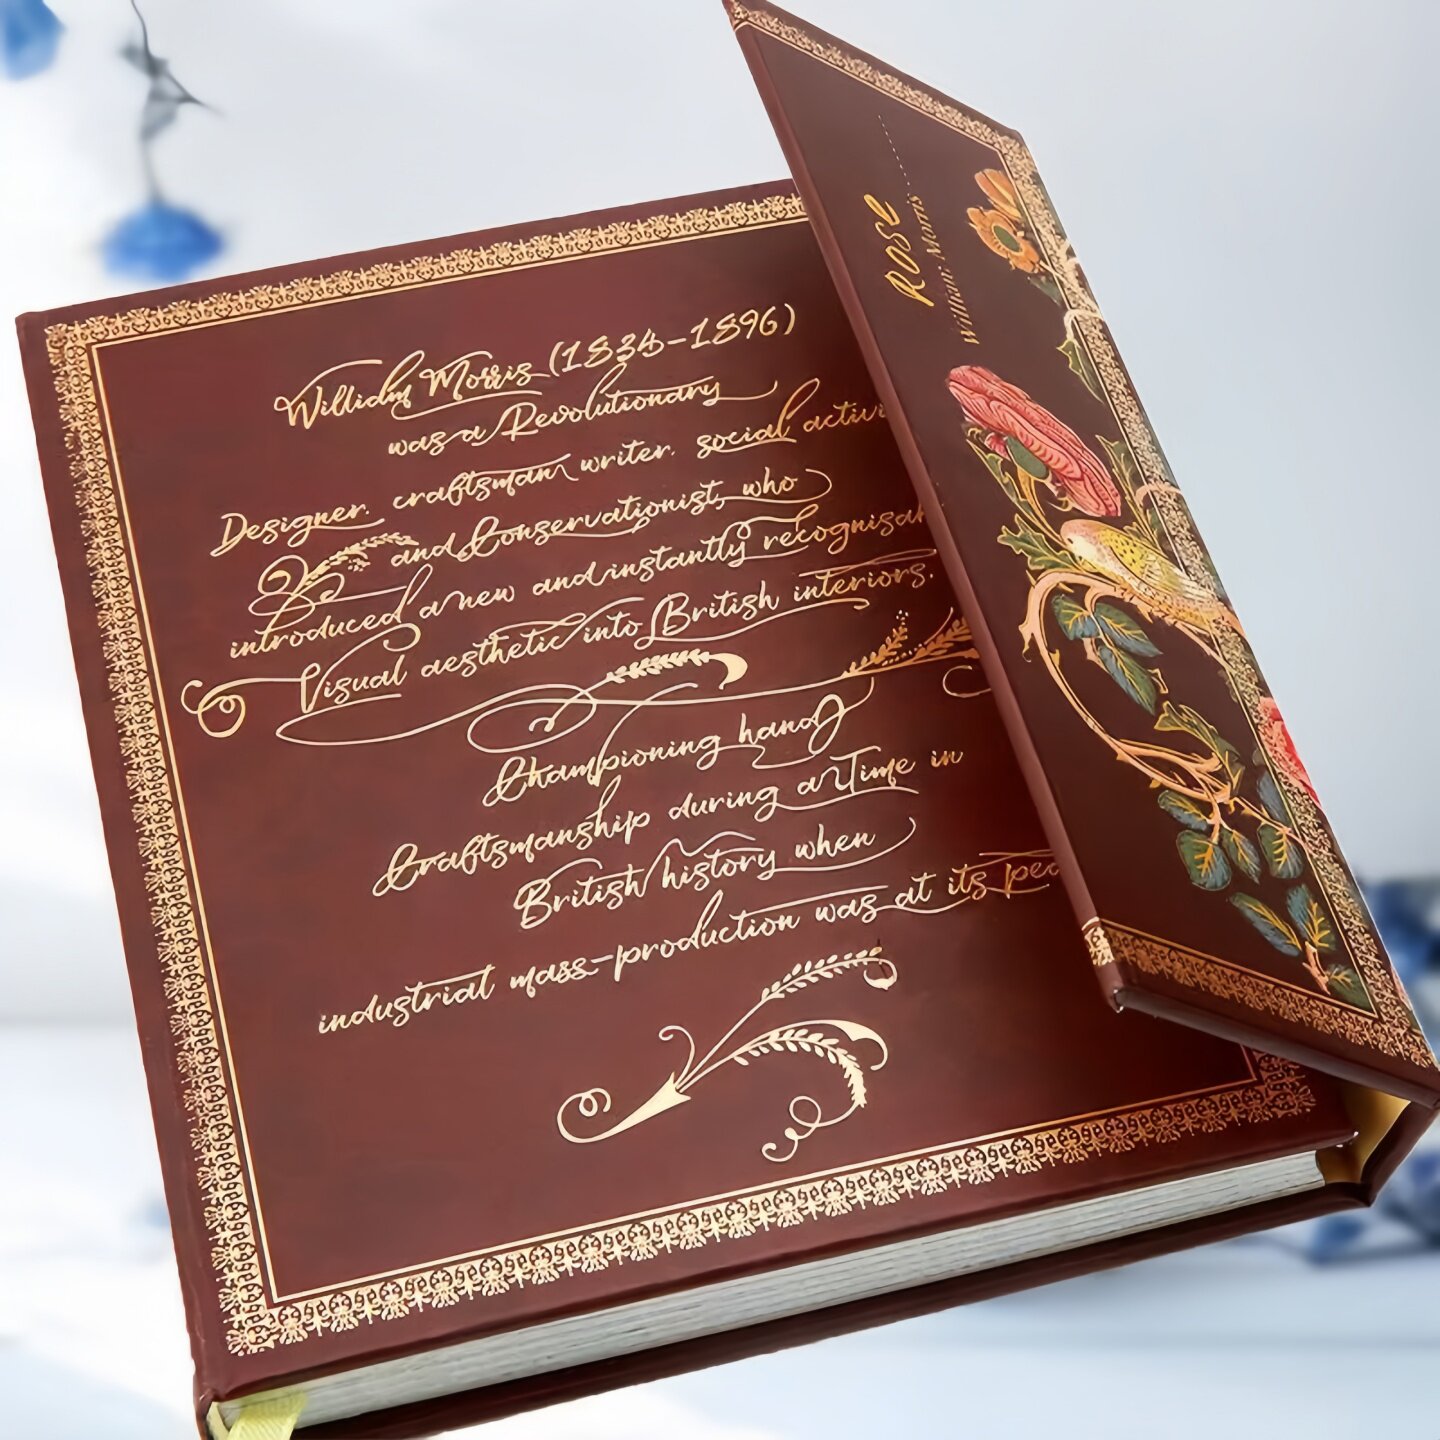 William Morris (1834-1896)
was a Revolutionary
Designer. craftsman writer. social activi
and Conservationist, who
introduced a new and instantly recognisa
Visual aesthetic into British interiors.
Championing hand
Craftsmanship during a Time in
British history when
industrial mass-production was at its pea
Rose
William Morris